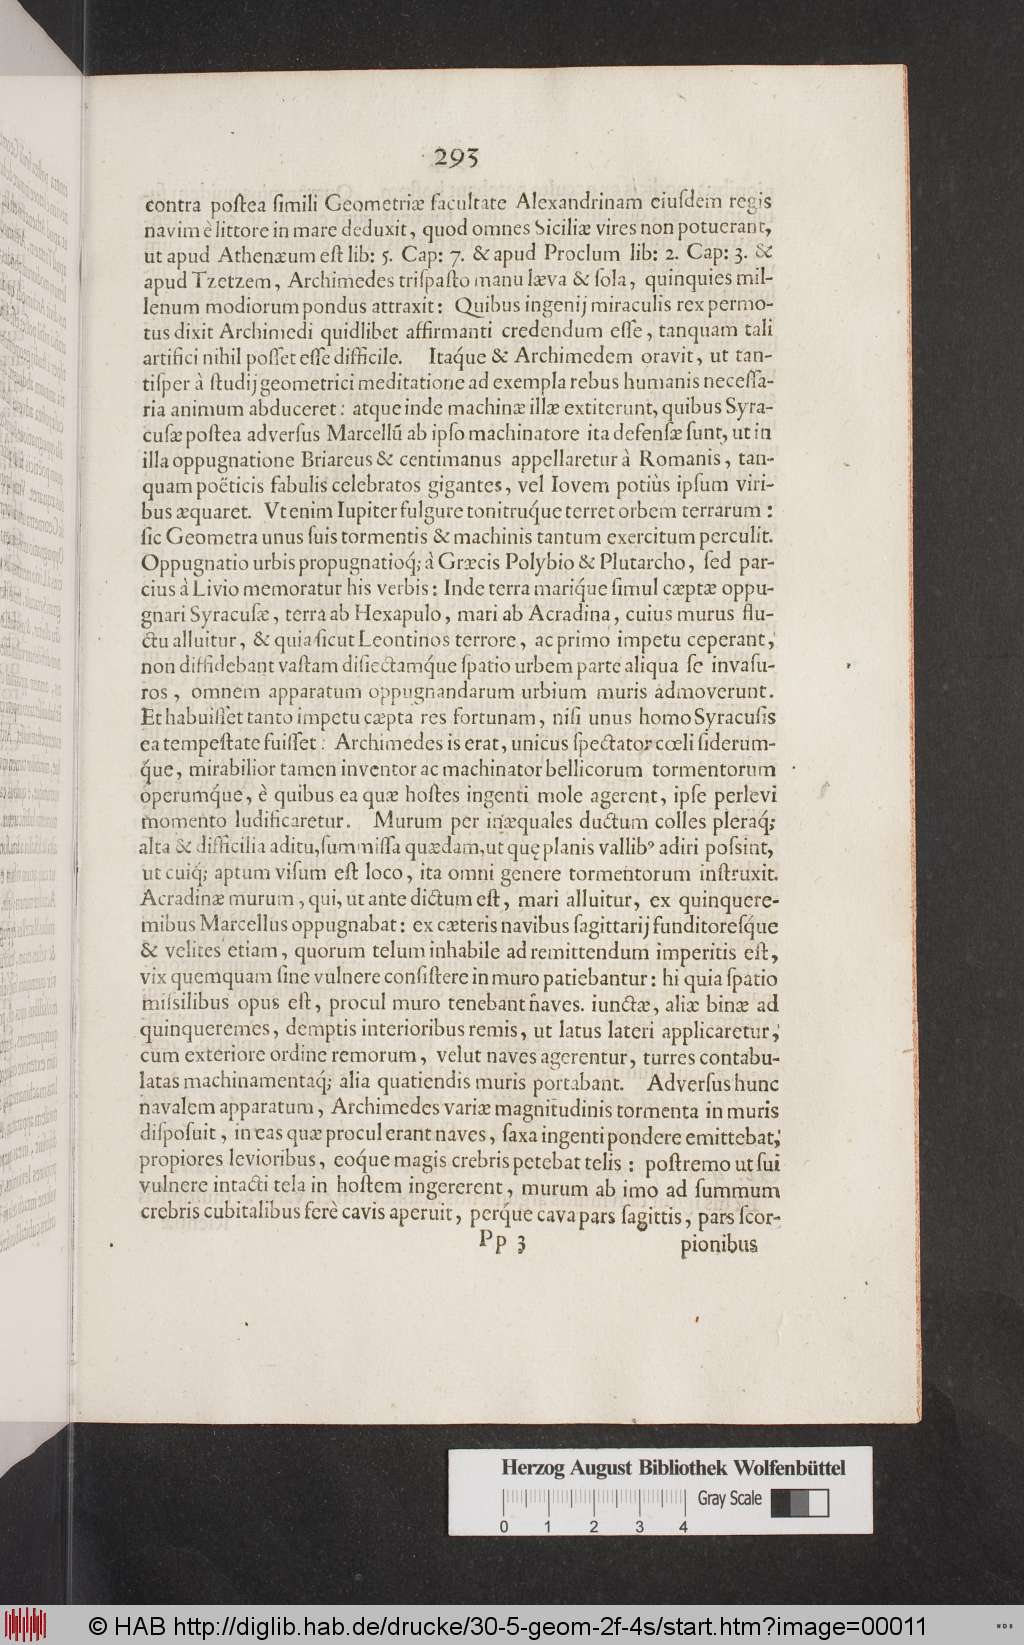 293
contra poſtea ſimili Geometriæ facultate Alexandrinam eiuſdem regis
navim è littore in mare deduxit, quod omnes Siciliæ vires non potuerant,
ut apud Athenæum eſt lib: 5. Cap: 7. & apud Proclum lib: 2. Cap: 3. &
apud Tzetzem, Archimedes triſpaſto manu læva & ſola, quinquies mil-
lenum modiorum pondus attraxit: Quibus ingenij miraculis rex permo-
tus dixit Archimedi quidlibet affirmanti credendum eſſe, tanquam tali
artifici nihil poſſet eſſe difficile. Itaq́ue & Archimedem oravit, ut tan-
tiſper à ſtudij geometrici meditatione ad exempla rebus humanis neceſſa-
ria animum abduceret: atque inde machinæ illæ extiterunt, quibus Syra-
cuſæ poſtea adverſus Marcellũ ab ipſo machinatore ita defenſæ ſunt, ut in
illa oppugnatione Briareus & centimanus appellaretur à Romanis, tan-
quam poëticis fabulis celebratos gigantes, vel Iovem potiùs ipſum viri-
bus æquaret. Vt enim Iupiter fulgure tonitruq́ue terret orbem terrarum:
ſic Geometra unus ſuis tormentis & machinis tantum exercitum perculit.
Oppugnatio urbis propugnatioq́; à Græcis Polybio & Plutarcho, ſed par-
cius à Livio memoratur his verbis: Inde terra mariq́ue ſimul cæptæ oppu-
gnari Syracuſæ, terra ab Hexapulo, mari ab Acradina, cuius murus flu-
ctu alluitur, & quia ſicut Leontinos terrore, ac primo impetu ceperant,
non diffidebant vaſtam diſiectamq́ue ſpatio urbem parte aliqua ſe invaſu-
ros, omnem apparatum oppugnandarum urbium muris admoverunt.
Et habuiſſet tanto impetu cæpta res fortunam, niſi unus homo Syracuſis
ea tempeſtate fuiſſet: Archimedes is erat, unicus ſpectator cœli ſiderum-
q́ue, mirabilior tamen inventor ac machinator bellicorum tormentorum
operumq́ue, è quibus ea quæ hoſtes ingenti mole agerent, ipſe perlevi
momento ludificaretur. Murum per inæquales ductum colles pleraq́;
alta & difficilia aditu, ſummiſſa quædam, ut quę planis vallibꝰ adiri poſsint,
ut cuiq́; aptum viſum eſt loco, ita omni genere tormentorum inſtruxit.
Acradinæ murum, qui, ut ante dictum eſt, mari alluitur, ex quinquere-
mibus Marcellus oppugnabat: ex cæteris navibus ſagittarij funditoreſq́ue
& velites etiam, quorum telum inhabile ad remittendum imperitis eſt,
vix quemquam ſine vulnere conſiſtere in muro patiebantur: hi quia ſpatio
miſsilibus opus eſt, procul muro tenebant naves. iunctæ, aliæ binæ ad
quinqueremes, demptis interioribus remis, ut latus lateri applicaretur,
cum exteriore ordine remorum, velut naves agerentur, turres contabu-
latas machinamentaq́; alia quatiendis muris portabant. Adverſus hunc
navalem apparatum, Archimedes variæ magnitudinis tormenta in muris
diſpoſuit, in eas quæ procul erant naves, ſaxa ingenti pondere emittebat,
propiores levioribus, eoq́ue magis crebris petebat telis: poſtremo ut ſui
vulnere intacti tela in hoſtem ingererent, murum ab imo ad ſummum
crebris cubitalibus ferè cavis aperuit, perq́ue cava pars ſagittis, pars ſcor-
Pp 3 pionibus
Herzog August Bibliothek Wolfenbüttel
Gray Scale
0 1 2 3 4
© HAB http://diglib.hab.de/drucke/30-5-geom-2f-4s/start.htm?image=00011